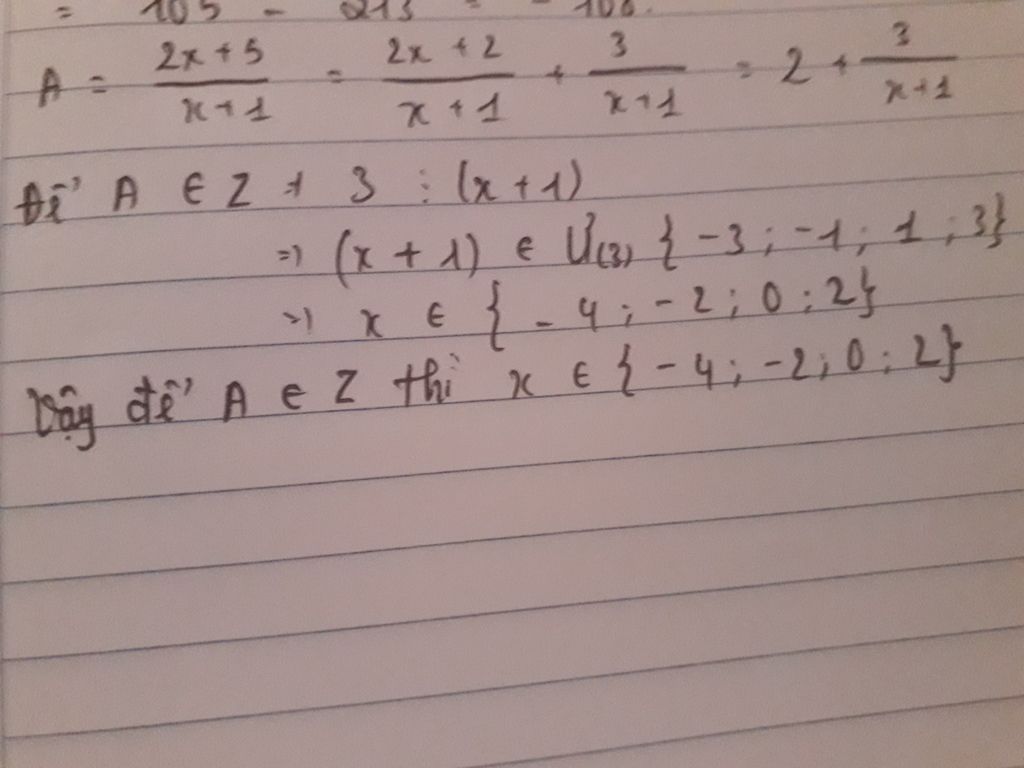 = 105 - 213 = - 108.
A = \frac{2x+5}{x+1} = \frac{2x+2}{x+1} + \frac{3}{x+1} = 2 + \frac{3}{x+1}
Để A ∈ Z + 3 ⋮ (x+1)
=) (x+1) ∈ Ư(3) {-3; -1; 1; 3}
=) x ∈ {-4; -2; 0; 2}
Vậy để A ∈ Z thì x ∈ {-4; -2; 0; 2}